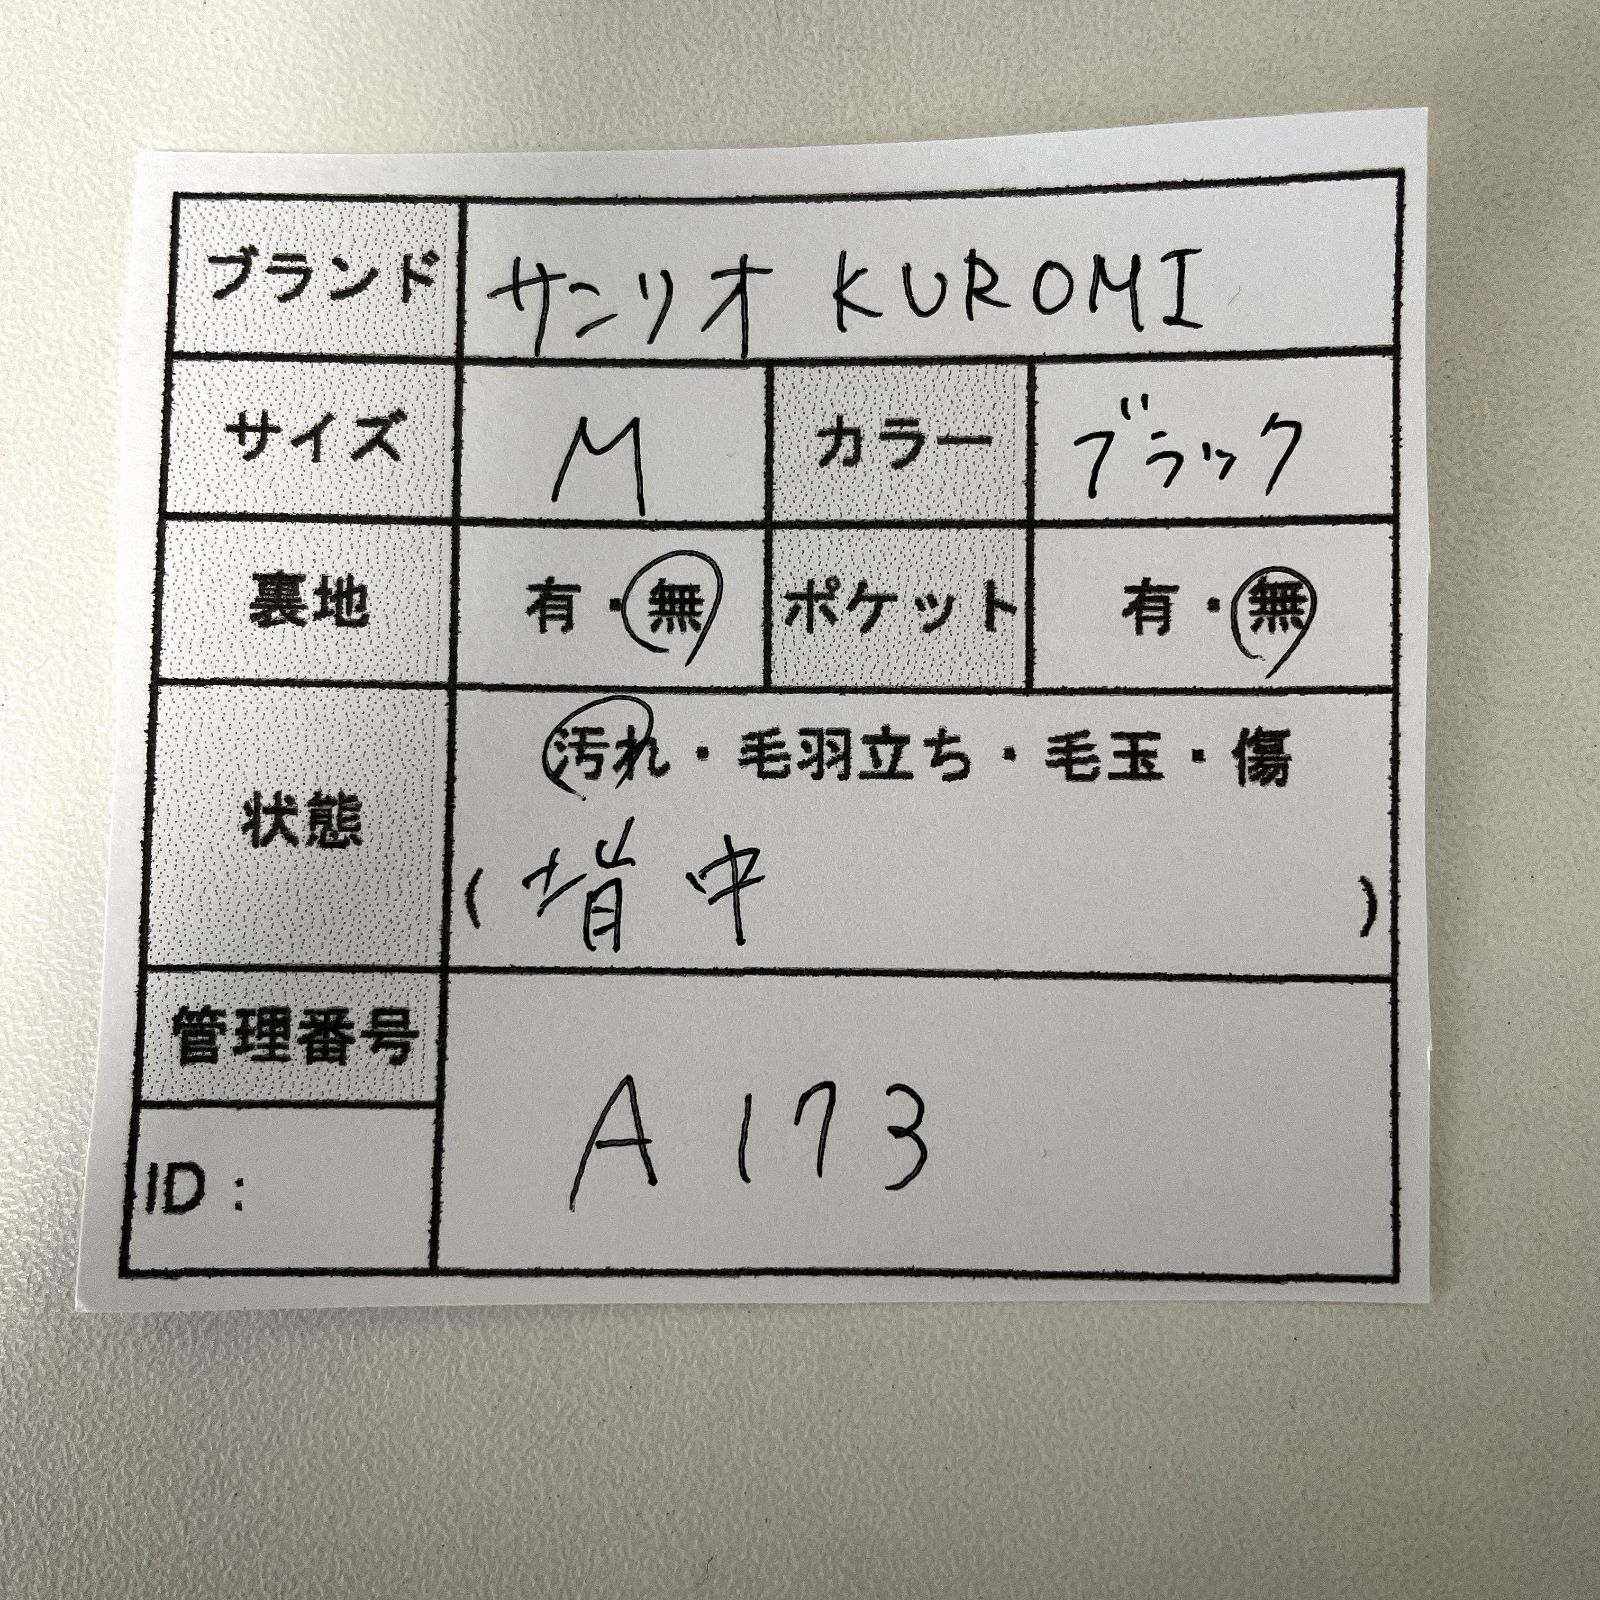 ブランド サンリオ KUROMI
サイズ M カラー ブラック
裏地 有・無 ポケット 有・無
汚れ・毛羽立ち・毛玉・傷
状態
(背中)
管理番号
A173
ID：